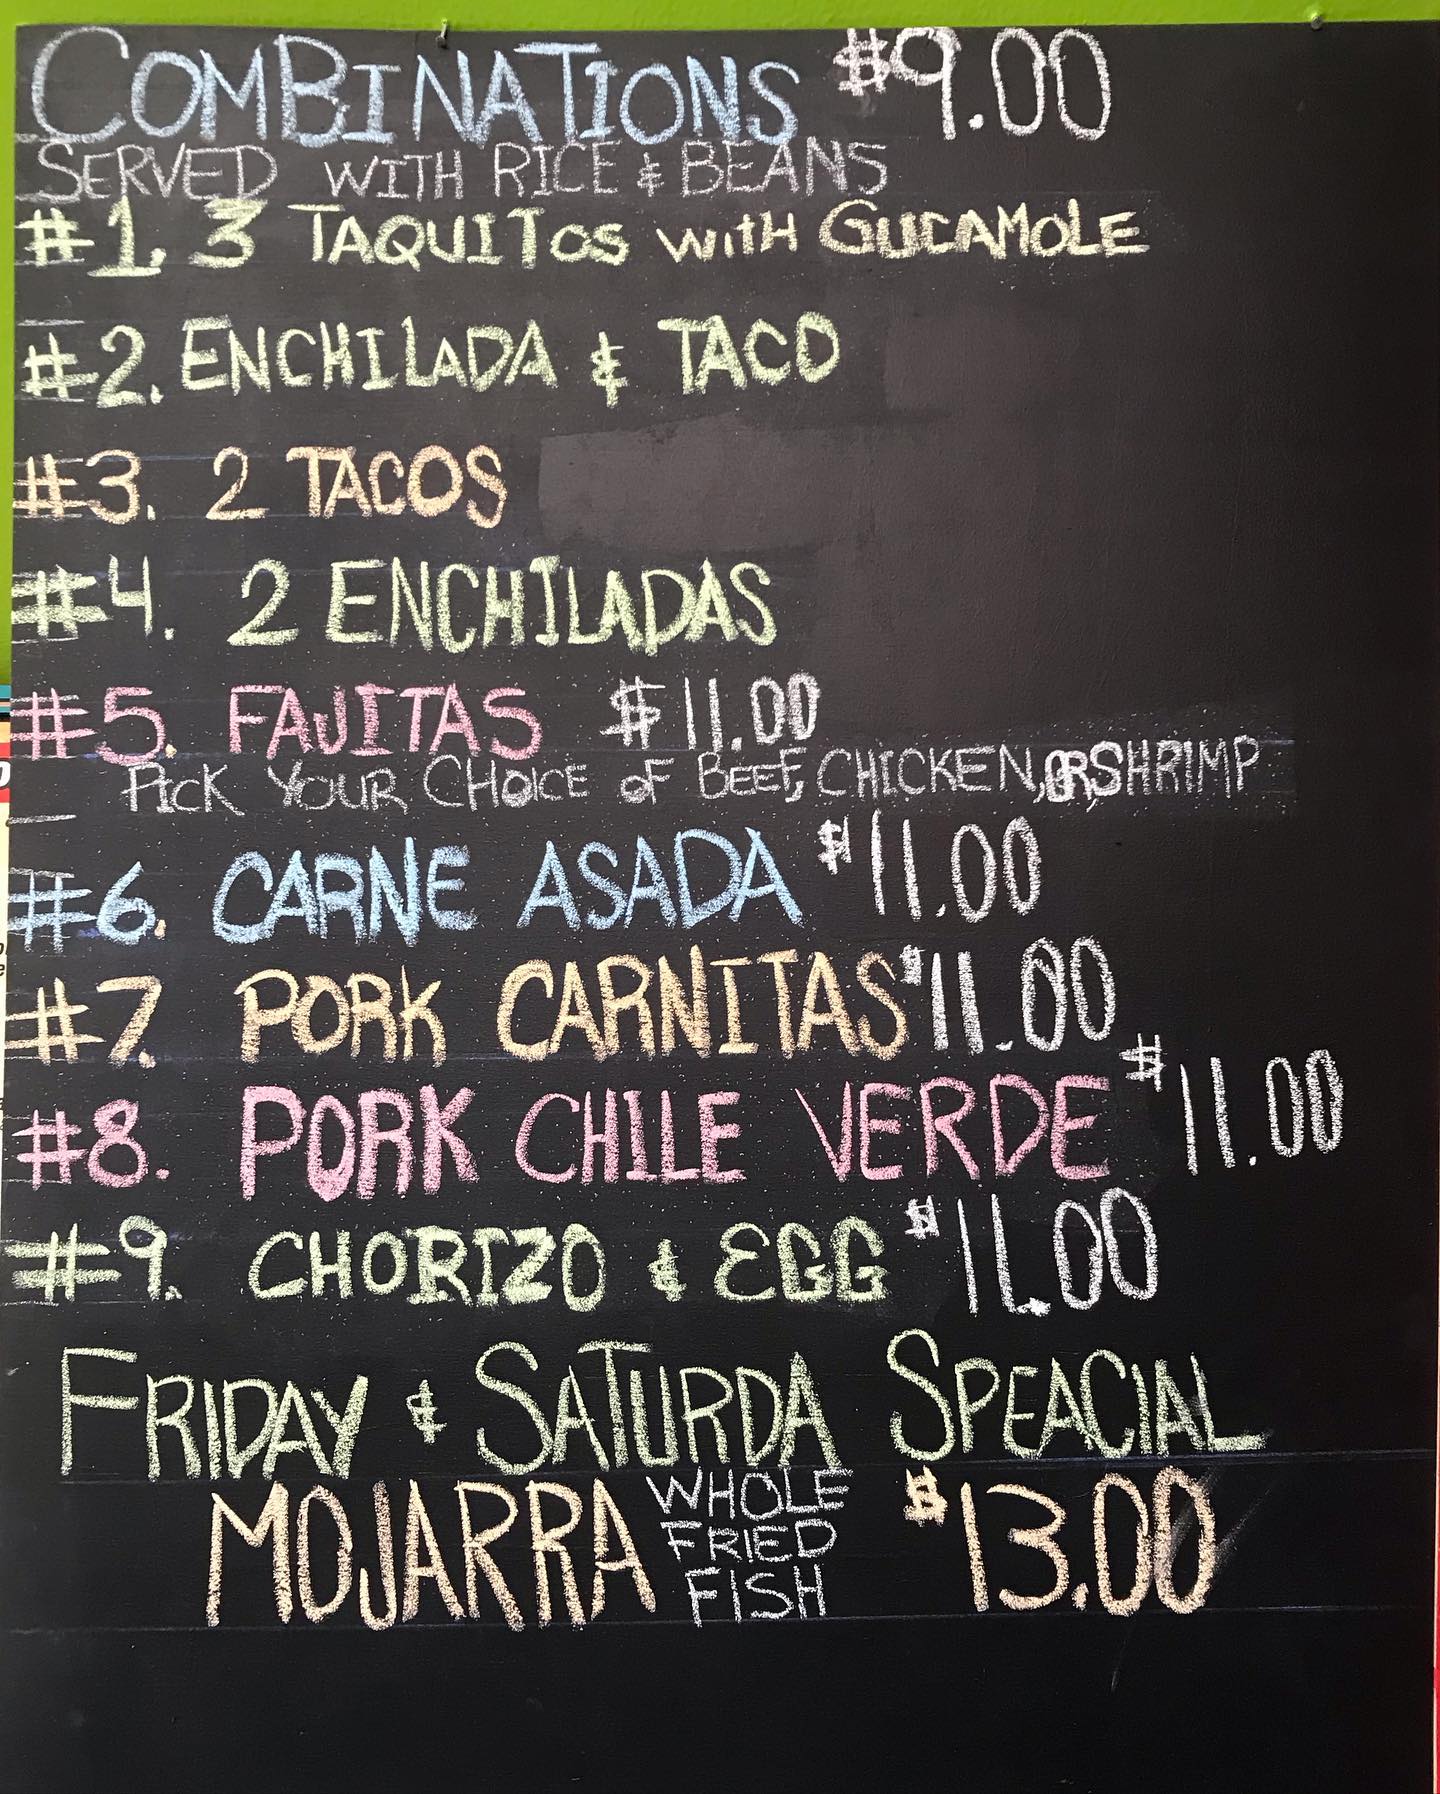 COMBINATIONS $9.00
SERVED WITH RICE & BEANS
#1. 3 TAQUITOS WITH GUCAMOLE
#2. ENCHILADA & TACO
#3. 2 TACOS
#4. 2 ENCHILADAS
#5. FAJITAS $11.00
PICK YOUR CHOICE OF BEEF, CHICKEN, OR SHRIMP
#6. CARNE ASADA $11.00
#7. PORK CARNITAS $11.00
#8. PORK CHILE VERDE $11.00
#9. CHORIZO & EGG $11.00
FRIDAY & SATURDA SPEACIAL
MOJARRA WHOLE FRIED FISH $13.00